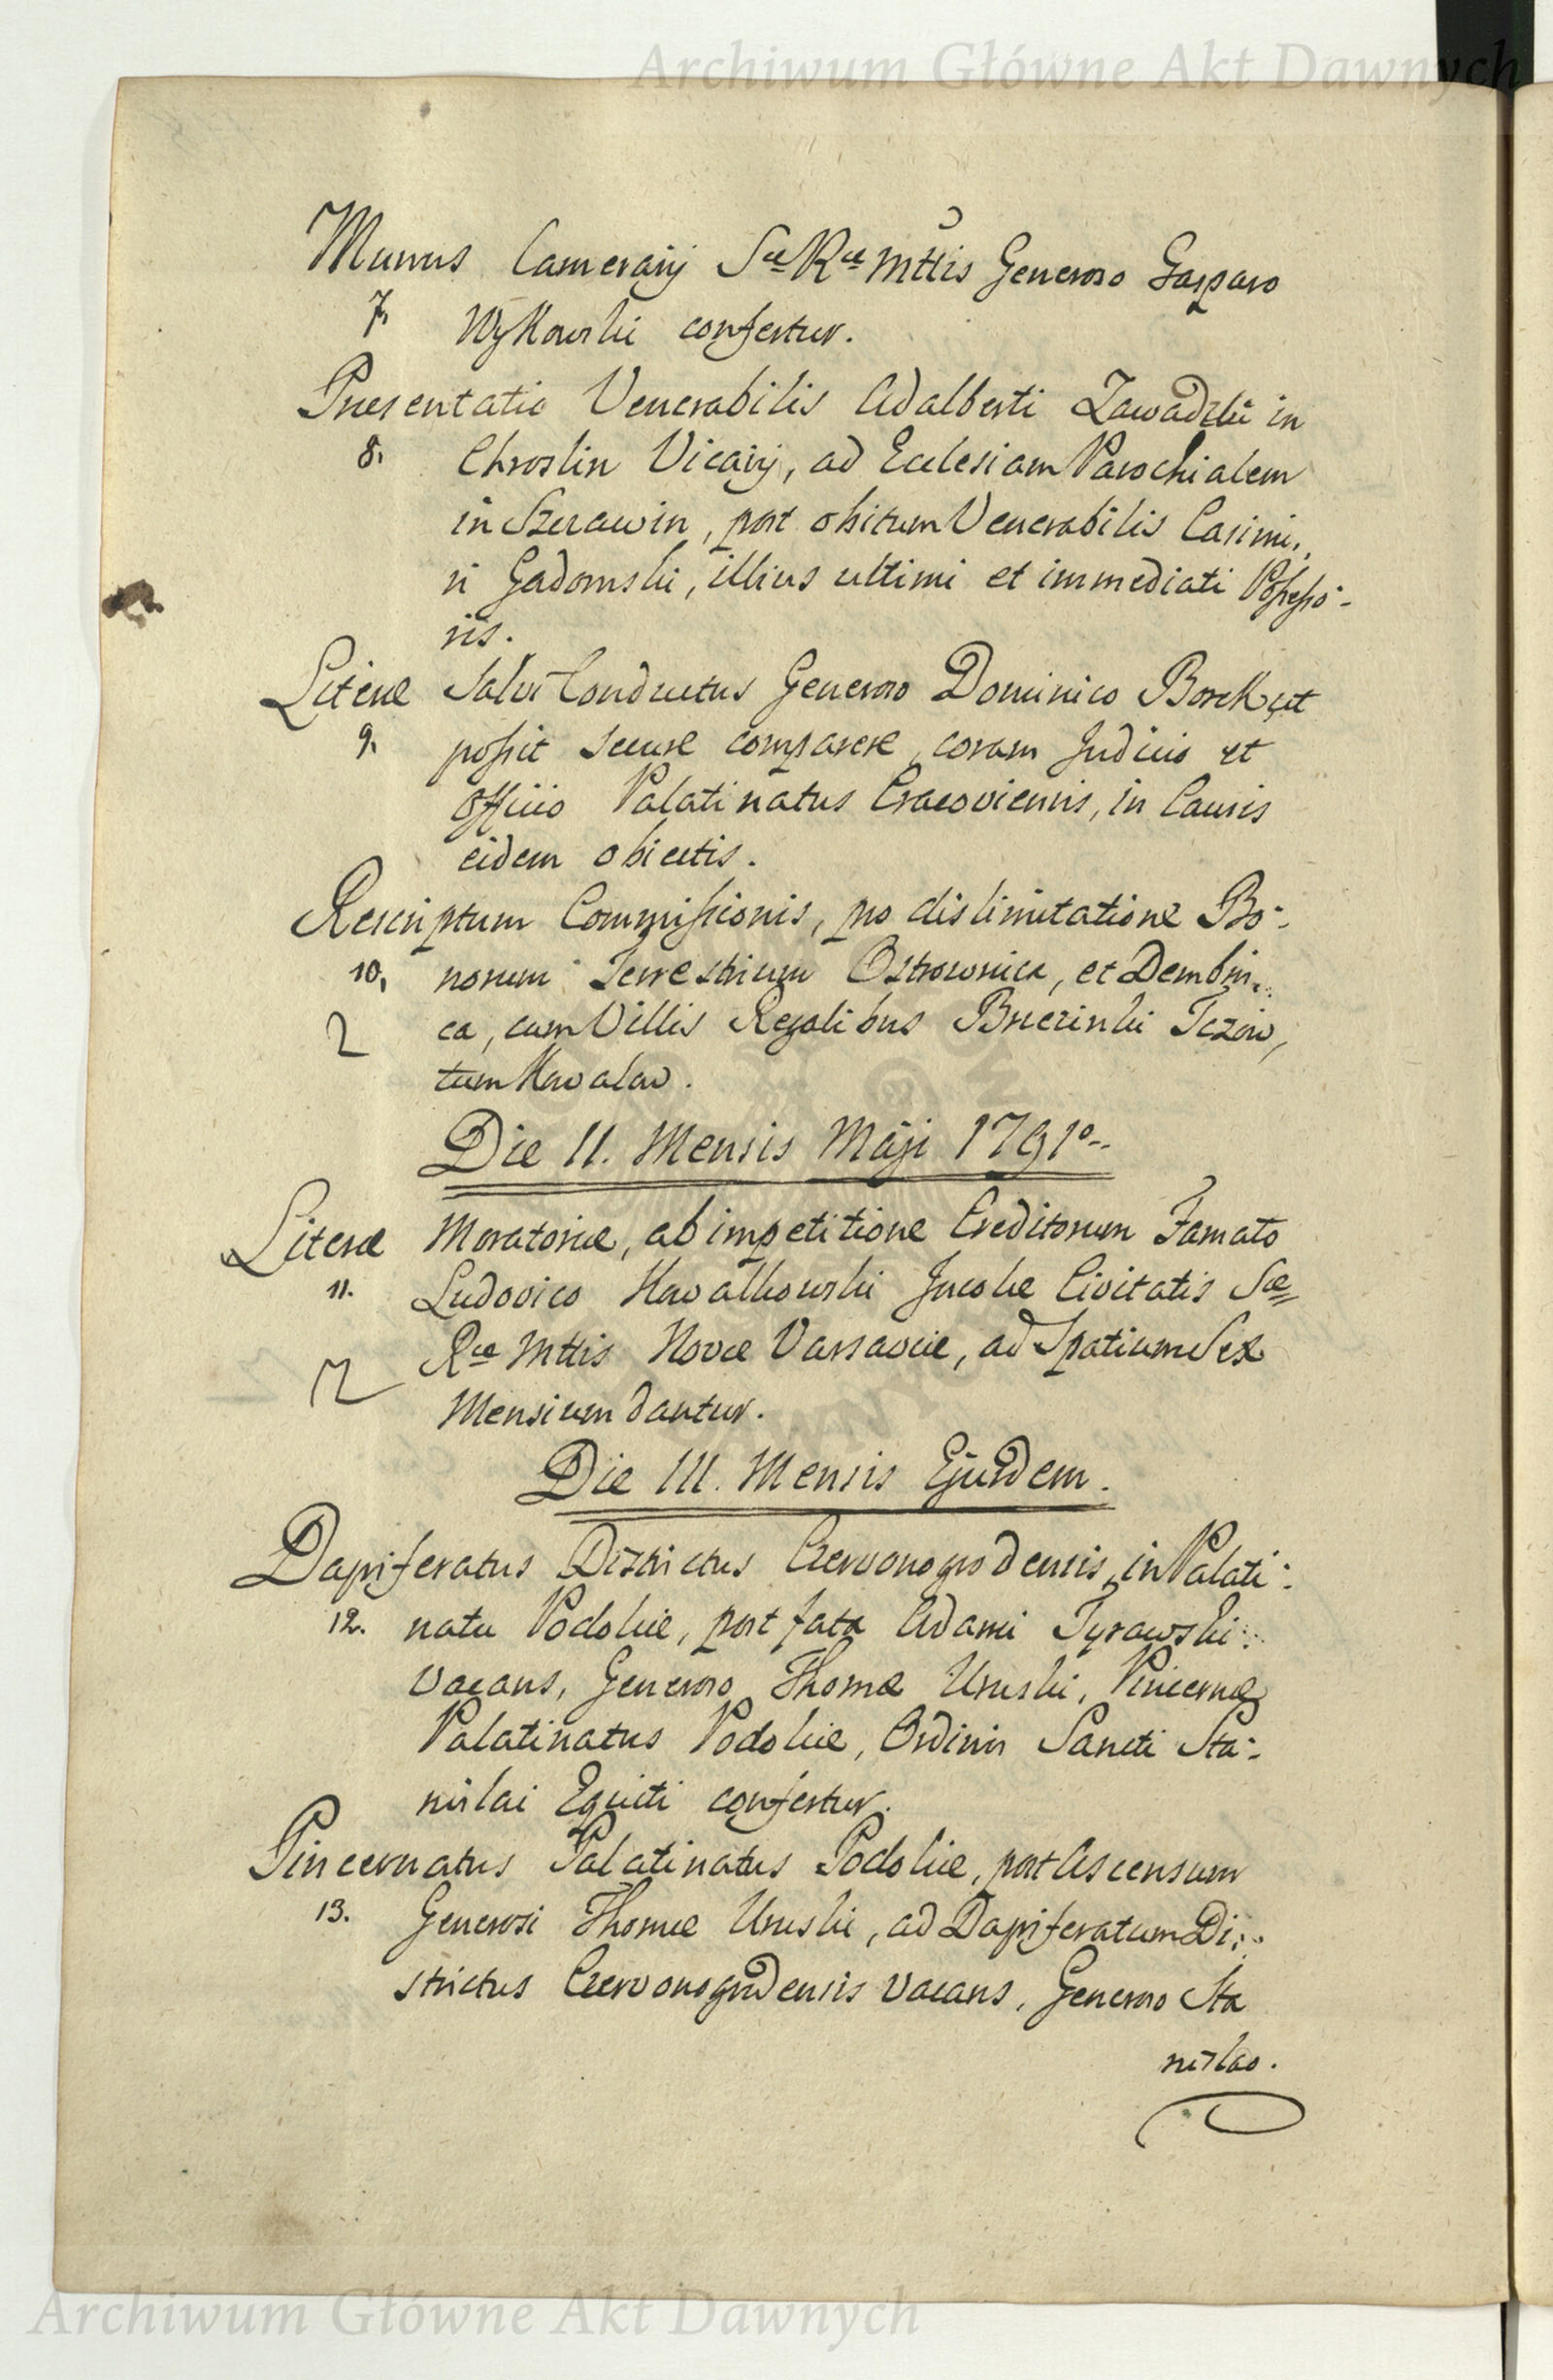 Archiwum Główne Akt Dawnych
Munus Camerarij Sæ Ræ Mttis Generoso Gasparo
7. Wykowski confertur.
Præsentatio Venerabilis Adalberti Zawadzki in
8. Chroslin Vicarij, ad Ecclesiam Parochialem
in Szerawin, post obitum Venerabilis Casimi-
ri Gadomski, illius ultimi et immediati Possesso-
ris.
Literæ Salvi Conductus Generoso Dominico Borck ut
9. possit secure comparere, coram Judicio et
Officio Palatinatus Cracoviensis, in Causis
eidem obiectis.
Rescriptum Commissionis, pro dislimitatione Bo-
10. norum Terrestrium Ostrownica, et Dembni-
2 ca, cum Villis Regalibus
tum Kowalow.
Die II. Mensis Maji 1791o
Literæ Moratoriæ, ab impetitione Creditorum Famato
11. Ludovico Kowalkowski Incolæ Civitatis Sæ
Ræ Mttis Novæ Varsaviæ, ad Spatium Sex
Mensium dantur.
Die III. Mensis Ejusdem.
Dapiferatus Districtus Czervonogrodensis, in Palati-
12. natu Podoliæ, post fata Adami Tyrawski
vacans, Generoso Thomæ Uruski, Pincernæ
Palatinatus Podoliæ, Ordinis Sancti Sta-
nislai Equiti confertur.
Pincernatus Palatinatus Podoliæ, post Ascensum
13. Generosi Thomæ Uruski, ad Dapiferatum Di-
strictus Czervonogrodensis vacans, Generoso Sta
nislao.
Archiwum Główne Akt Dawnych